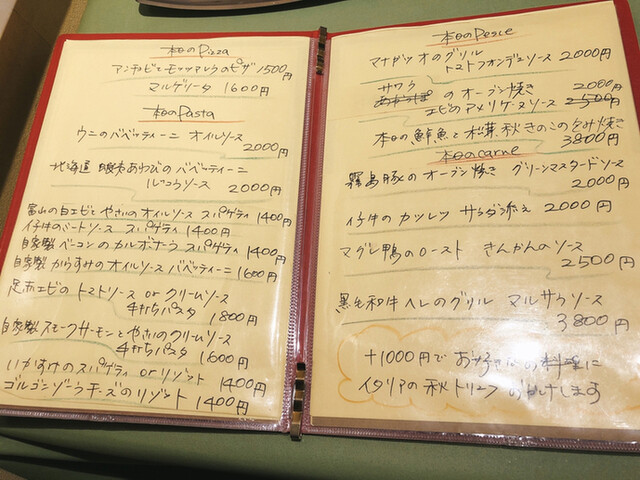 本日のPizza
アンチョビとモッツァレラのピザ 1500円
マルゲリータ 1600円
本日のPasta
ウニのバベッティーニ オイルソース
2000円
北海道 蝦夷あわびのバベッティーニ
ソース 2000円
富山の白エビとやさいのオイルソース スパゲティ 1400円
仔牛のミートソース スパゲティ 1400円
自家製ベーコンのカルボナーラ スパゲティ 1400円
自家製 からすみのオイルソース バベッティーニ 1600円
足赤エビのトマトソース orクリームソース
手打ちパスタ 1800円
自家製スモークサーモンとやさいのクリームソース
手打ちパスタ 1600円
いかすみのスパゲティ orリゾット 1400円
ゴルゴンゾーラチーズのリゾット 1400円
本日のPesce
マナガツオのグリル
トマトフォンデュソース 2000円
サワラ のオーブン焼き 2000円
エビのアメリケーヌソース 2500円
本日の鮮魚と 秋きのこの包み焼き
3800円
本日のCarne
霧島豚のオーブン焼き グリーンマスタードソース
2000円
仔牛のカツレツ サラダ添え 2000円
マグレ鴨のロースト きんかんのソース
2500円
黒毛和牛ヘレのグリル マルサラソース
3800円
+1000円で お好きなお料理に
イタリアの秋トリュフ おかけします